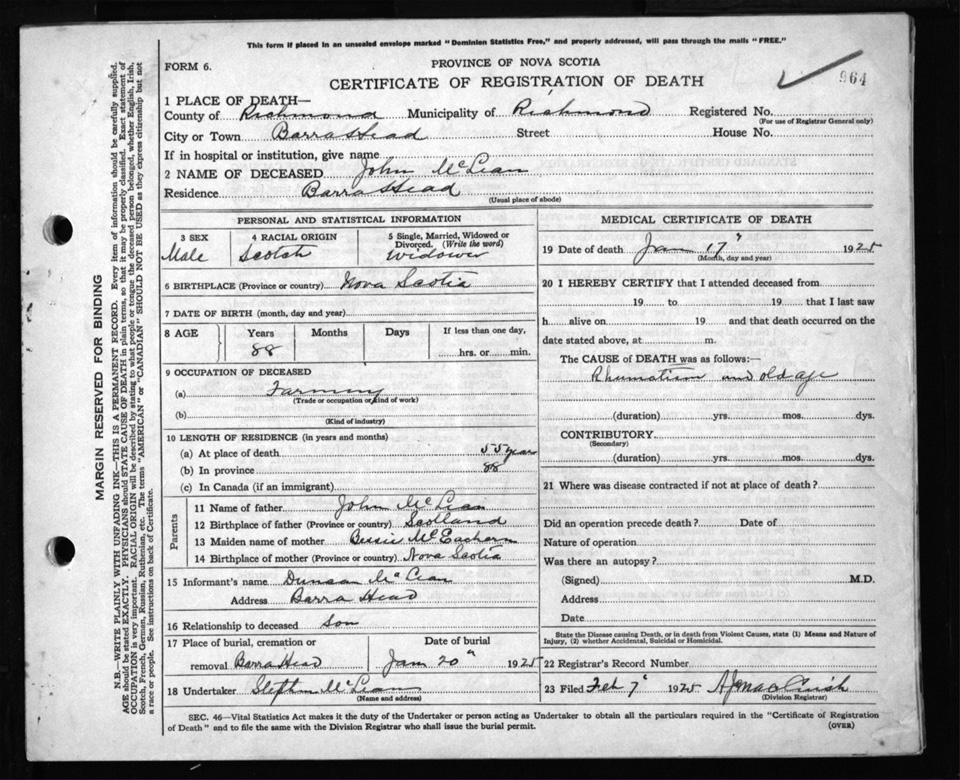 This form if placed in an unsealed envelope marked "Dominion Statistics Free," and properly addressed, will pass through the mails "FREE."
FORM 6.
PROVINCE OF NOVA SCOTIA
CERTIFICATE OF REGISTRATION OF DEATH
964
1 PLACE OF DEATH—
County of Richmond Municipality of Richmond Registered No.
(For use of Registrar General only)
City or Town Barra Head Street House No.
If in hospital or institution, give name
2 NAME OF DECEASED John McLean
Residence Barra Head
(Usual place of abode)
PERSONAL AND STATISTICAL INFORMATION
3 SEX 4 RACIAL ORIGIN 5 Single, Married, Widowed or Divorced. (Write the word)
Male Scotch Widower
6 BIRTHPLACE (Province or country) Nova Scotia
7 DATE OF BIRTH (month, day and year)
8 AGE Years Months Days If less than one day,
88 hrs. or min.
9 OCCUPATION OF DECEASED
(a) Farming
(Trade or occupation or kind of work)
(b)
(Kind of industry)
10 LENGTH OF RESIDENCE (in years and months)
(a) At place of death 55 years
(b) In province 88
(c) In Canada (if an immigrant)
Parents
11 Name of father John McLean
12 Birthplace of father (Province or country) Scotland
13 Maiden name of mother Bessie McEachern
14 Birthplace of mother (Province or country) Nova Scotia
15 Informant's name Duncan McLean
Address Barra Head
16 Relationship to deceased Son
17 Place of burial, cremation or Date of burial
removal Barra Head Jan 20" 1925
18 Undertaker Stephen McLean
(Name and address)
MEDICAL CERTIFICATE OF DEATH
19 Date of death Jan 17" 1925
(Month, day and year)
20 I HEREBY CERTIFY that I attended deceased from
19 to 19 that I last saw
h alive on 19 and that death occurred on the
date stated above, at m.
The CAUSE of DEATH was as follows:—
Rhumatism and old age
(duration) yrs. mos. dys.
CONTRIBUTORY
(Secondary)
(duration) yrs. mos. dys.
21 Where was disease contracted if not at place of death?
Did an operation precede death? Date of
Nature of operation
Was there an autopsy?
(Signed) M.D.
Address
Date
State the Disease causing Death, or in death from Violent Causes, state (1) Means and Nature of
Injury, (2) whether Accidental, Suicidal or Homicidal.
22 Registrar's Record Number
23 Filed Feb 7" 1925
(Division Registrar)
SEC. 46—Vital Statistics Act makes it the duty of the Undertaker or person acting as Undertaker to obtain all the particulars required in the "Certificate of Registration
of Death" and to file the same with the Division Registrar who shall issue the burial permit.
(OVER)
MARGIN RESERVED FOR BINDING
N.B.—WRITE PLAINLY WITH UNFADING INK—THIS IS A PERMANENT RECORD. Every item of information should be carefully supplied.
AGE should be stated EXACTLY. PHYSICIANS should STATE CAUSE OF DEATH in plain terms, so that it may be properly classified. Exact statement of
OCCUPATION is very important. RACIAL ORIGIN will be described by stating to what people or tongue the deceased person belonged, whether English, Irish,
Scotch, French, German, Russian, Ruthenian, etc. The terms "AMERICAN" or "CANADIAN" SHOULD NOT BE USED as they express citizenship but not
a race or people. See instructions on back of Certificate.